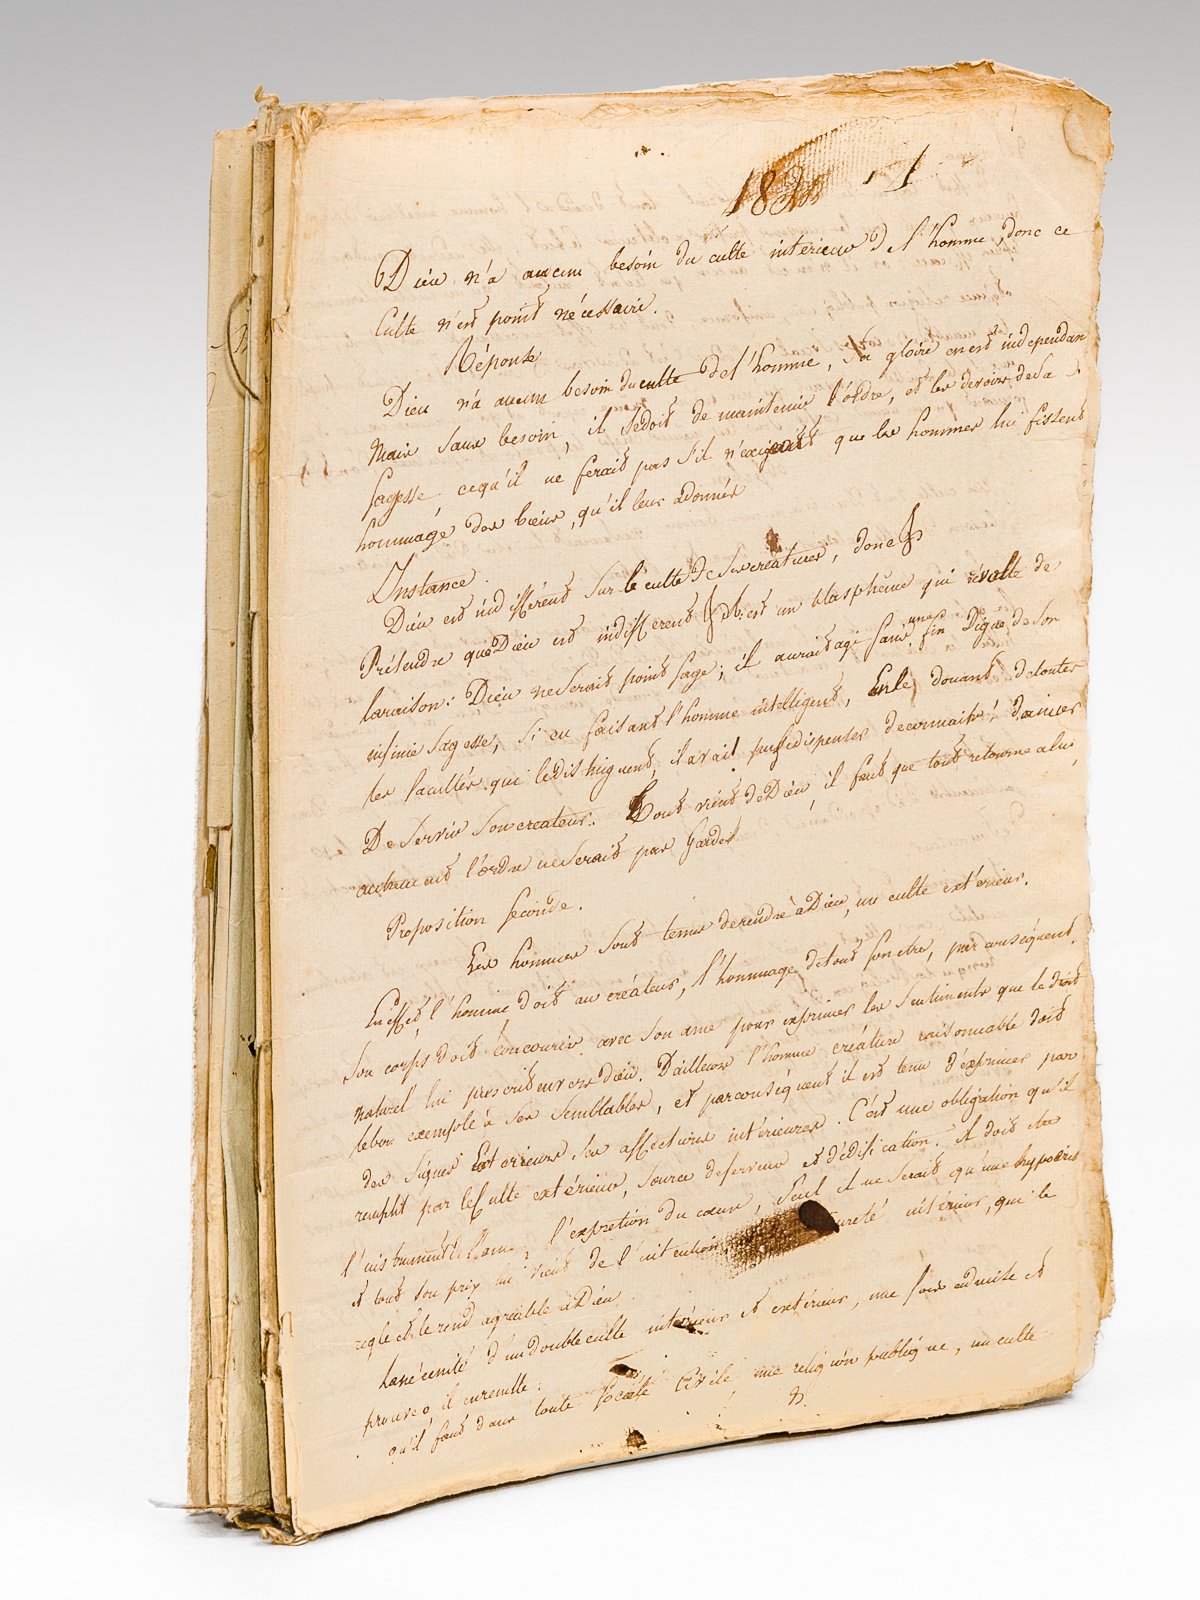 Dieu n'a aucun besoin du culte interieur de l'homme, donc ce
culte n'est point nécessaire.
Réponse
Dieu n'a aucun besoin du culte de l'homme, sa gloire en est independan
mais sans besoin, il se doit de maintenir l'ordre, et les devoirs de sa
sagesse, ce qu'il ne ferait pas s'il n'exigeait que les hommes lui fissent
hommage des biens, qu'il leur a donnés
Instance.
Dieu est indifférent sur le culte de ses créatures, donc
Prétendre que Dieu est indifferent est un blasphême qui révolte de
la raison: Dieu ne serait point sage; il aurait agi sans une fin digne de son
infinie sagesse, si en faisant l'homme intelligent, en le douant de toutes
les facultés qui le distinguent, il avait pu se dispenser de connaitre, d'aimer
De servir son createur. Tout vient de Dieu, il faut que tout retourne a lui
autrement l'ordre ne serait pas gardé
Proposition seconde.
Les hommes sont tenus de rendre à Dieu, un culte extérieur.
En effet, l'homme doit au créateur, l'hommage de tout son etre, par conséquent
son corps doit concourir avec son ame pour exprimer les sentiments que le droit
naturel lui prescrit envers dieu. D'ailleurs l'homme créature raisonnable doit
le bon exemple à ses semblables, et par conséquent il est tenu d'exprimer par
des signes exterieurs ses affections intérieures. C'est une obligation qu'il
remplit par le culte extérieur, source de ferveur et d'édification. Il doit etre
l'instrument de l'ame, l'expretion du cœur, seul il ne serait qu'une hypocris
et tout son prix lui vient de l'intention pureté intérieur, qui le
regle et le rend agréable à Dieu.
La nécenité d'un double culte interieur et extérieur, une fois admise et
prouveé, il en resulte.
qu'il faut dans toute societé civile, une religion publique, un culte